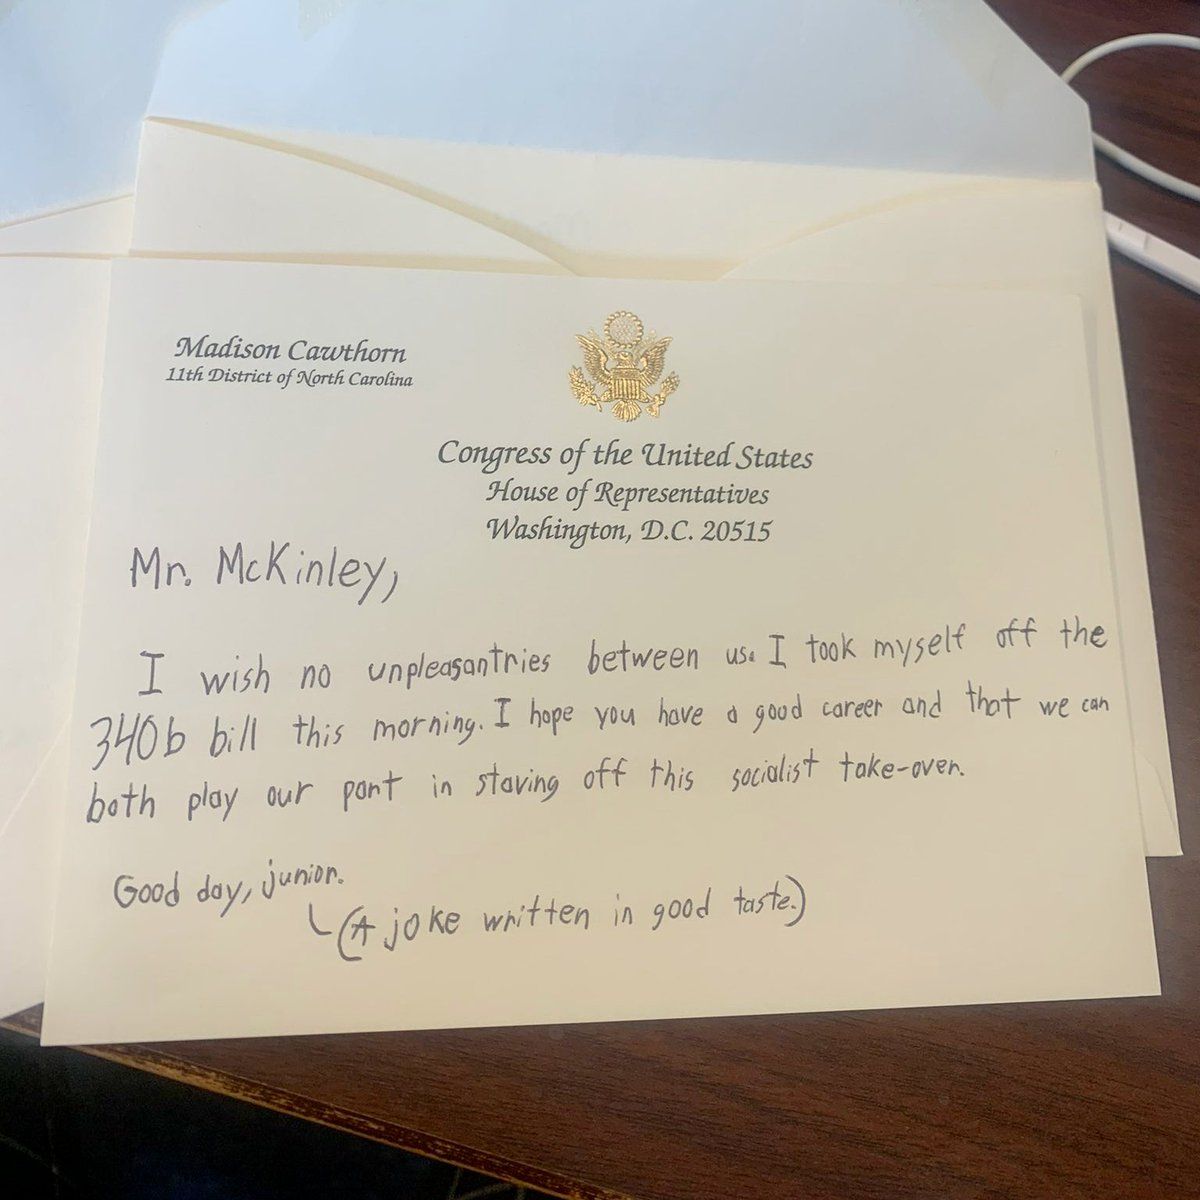 Madison Cawthorn
11th District of North Carolina
Congress of the United States
House of Representatives
Washington, D.C. 20515
Mr. McKinley,
I wish no unpleasantries between us. I took myself off the
340b bill this morning. I hope you have a good career and that we can
both play our part in staving off this socialist take-over.
Good day, junior.
(A joke written in good taste.)